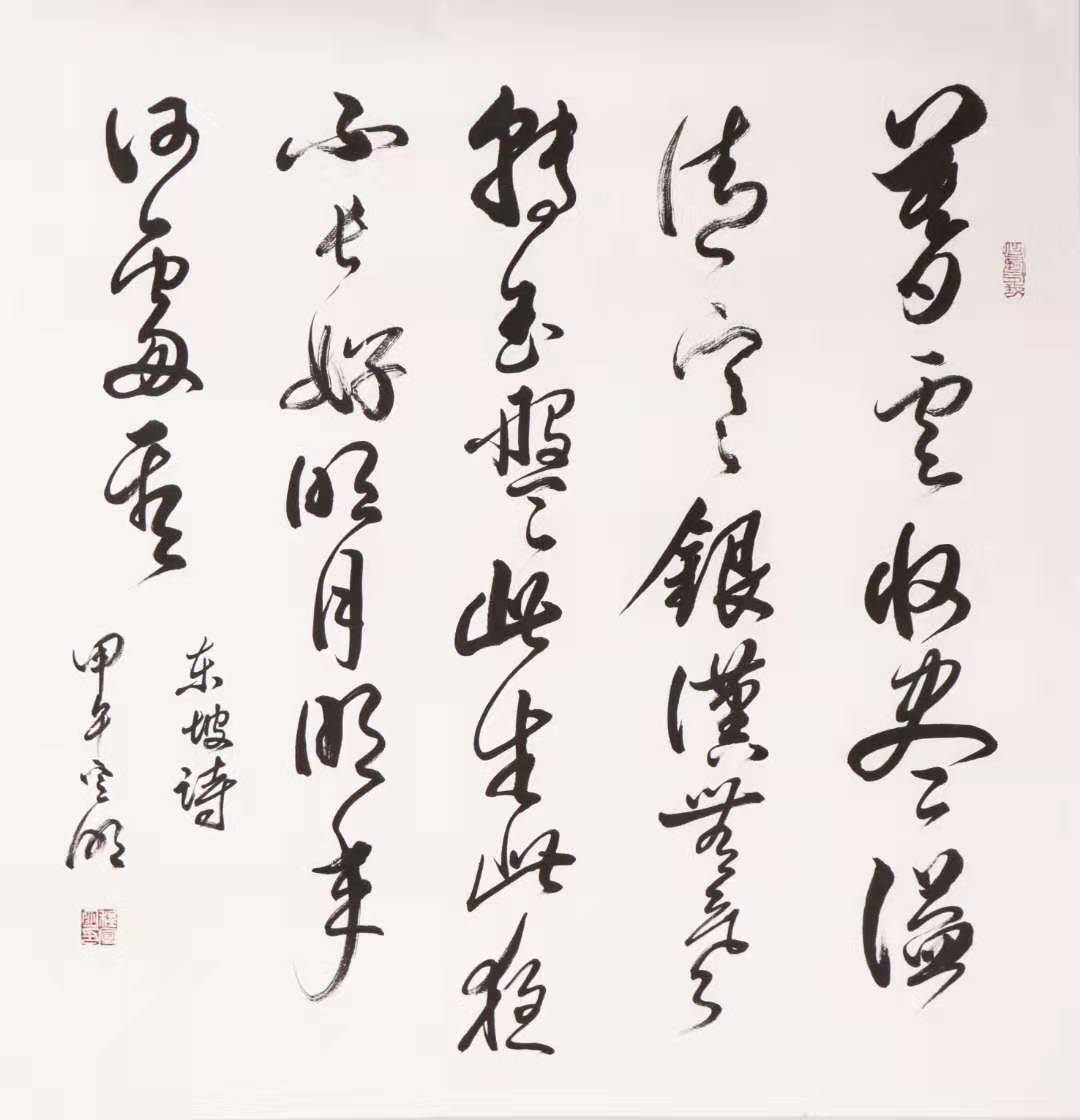 暮雲收尽溢
清寒銀漢無聲
轉玉盤此生此夜
不長好明月明年
何處看
东坡诗
甲午 明